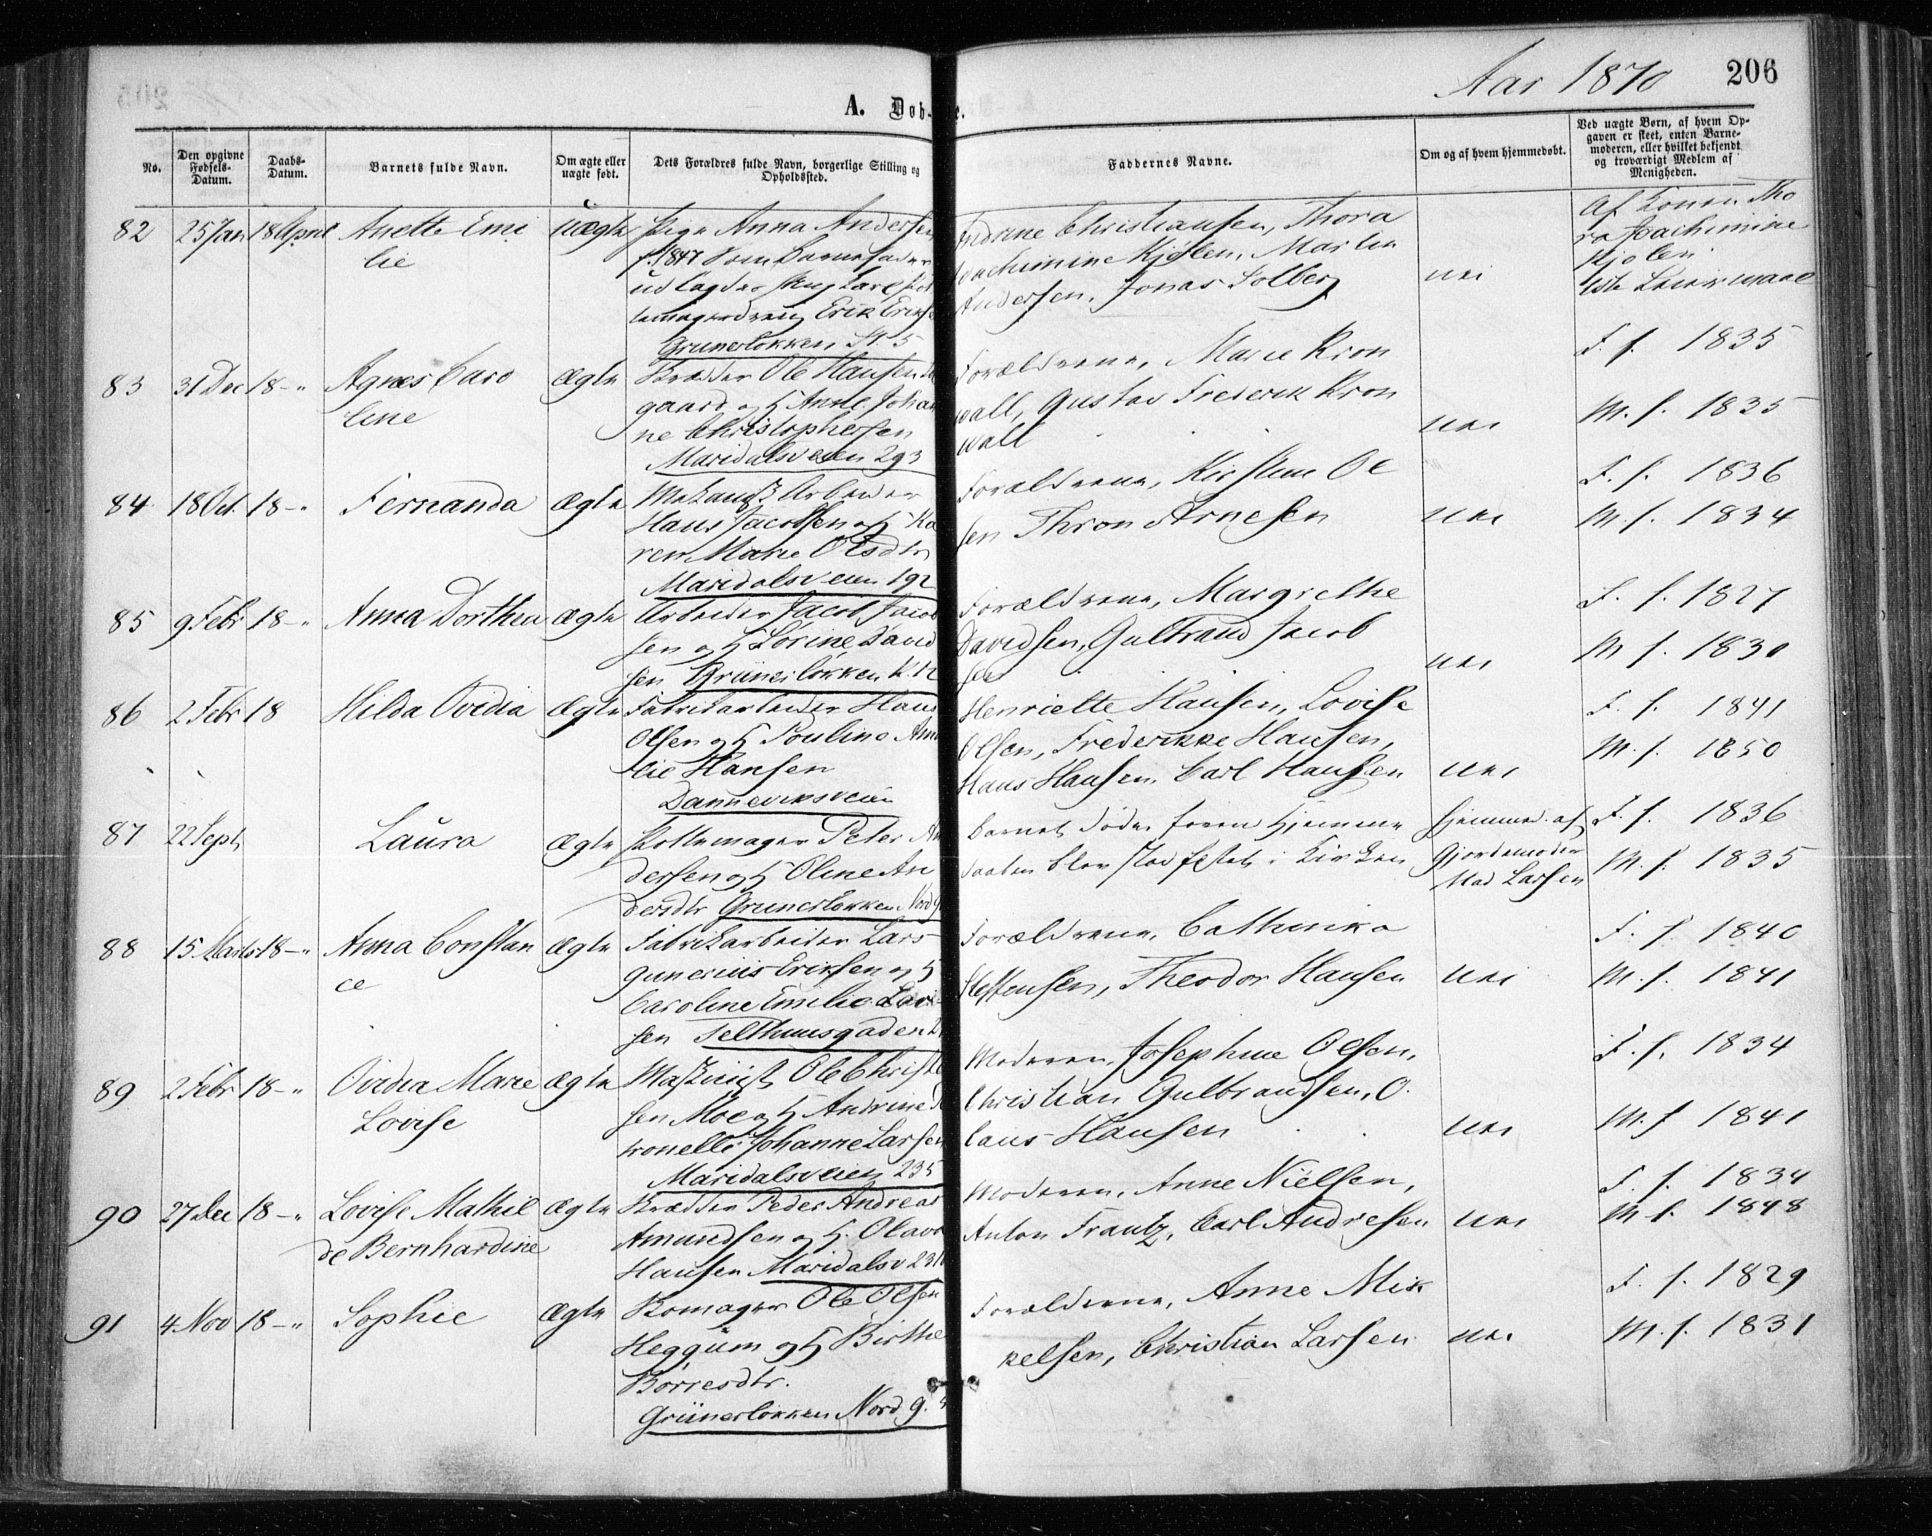 Aar 1870
206
A. Døb-
e.
No.
Den opgivne Fødsels-Datum.
Daabs-Datum.
Barnets fulde Navn.
Om ægte eller uægte født.
Dets Forældres fulde Navn, borgerlige Stilling og Opholdssted.
Faddernes Navne.
Om og af hvem hjemmedøbt.
Ved uægte Børn, af hvem Op-
gaven er skeet, enten Barne-
moderen, eller hvilket bekjendt
og troværdigt Medlem af
Menigheden.
82 25 Jan 18 April Anette Emi
lie
uægte
Pige Anna Andersen
f. 1847 som Barnefader
udlagdes
Erik Erikse
Grunerløkken St. 5
Andrine Christiansen, Thora
Joachimine Kjølen, Martin
Andersen, Jonas Solberg
nei
Af Konen Tho
ra Joachimine
Kjølen
83 31 Dec 18 -"- Agnes Caro
line
ægte
Bræder Ole Hansen
gaard og H Anne Johan
ne Christophersen
Maridalsveien 293
Forældrene, Marie Kron
wall, Gustav Frederik Kron
wall
nei
F. f. 1835
M. f. 1835
84 18 Oct. 18 -"- Fernanda
ægte
Mekanisk Arbeider
Hans Jacobsen og H Ka
ren Marie Olsdtr
Maridalsveien 192
Forældrene, Kirstine Ol
sen Thron Arnesen
nei
F. f. 1836
M. f. 1834
85 9 Febr 18 -"- Anna Dorthea
ægte
Arbeider Jacob Jacob
sen og H Lorine David
sen Grünerløkken K. 12
Forældrene, Margrethe
Davidsen, Gulbrand Jacob
sen
nei
F. f. 1827
M. f. 1830
86 2 Febr 18 Hilda Ovidia
ægte
Fabrikarbeider Hans
Olsen og H Pouline Ama
lie Hansen
Dannevirksveien
Henriette Hansen, Lovise
Olsen, Frederikke Hansen,
Hans Hansen, Carl Hansen
nei
F. f. 1841
M. f. 1850
87 22 Sept Laura
ægte
Pottemager Peter An
dersen og H Oline An
dersdtr Grunerløkken Nord 9
Barnet døde foren Hjemme
daaben blev stadfestet i Kirken
Hjemmed. af
Gjordemoder
Mad Larsen
F. f. 1836
M. f. 1835
88 15 Marts 18 -"- Anna Constan
ce
ægte
Fabrikarbeider Lars
Gunerius Eriksen og H
Caroline Emilie Lar
sen Telthuusgaden 2
Forældrene, Cathinka
Steffensen, Theodor Hansen
nei
F. f. 1840
M. f. 1841
89 2 Febr 18 -"- Ovidia Marie
Lovise
ægte
Maskinist Ole Christi
sen Moe og H Andrine Pe
tronelle Johanne Larsen
Maridalsveien 235
Moderen, Josephine Olsen,
Christian Gulbrandsen, O.
laus Hansen
nei
F. f. 1834
M. f. 1841
90 27 Dec 18 -"- Lovise Mathil
de Bernhardine
ægte
Bræder Peder Andreas
Amundsen og H. Olava
Hansen Maridalsv 231
Moderen, Anne Nielsen,
Anton Frantz, Carl Andresen
nei
F. f. 1834
M. f. 1848
91 4 Nov 18 -"- Sophie
ægte
Skomager Ole Olsen
Heggum og H Birthe
Børresdtr.
Grünerløkken Nord 9.
Forældrene, Anne Mik
kelsen, Christian Larsen
nei
F. f. 1829
M. f. 1831